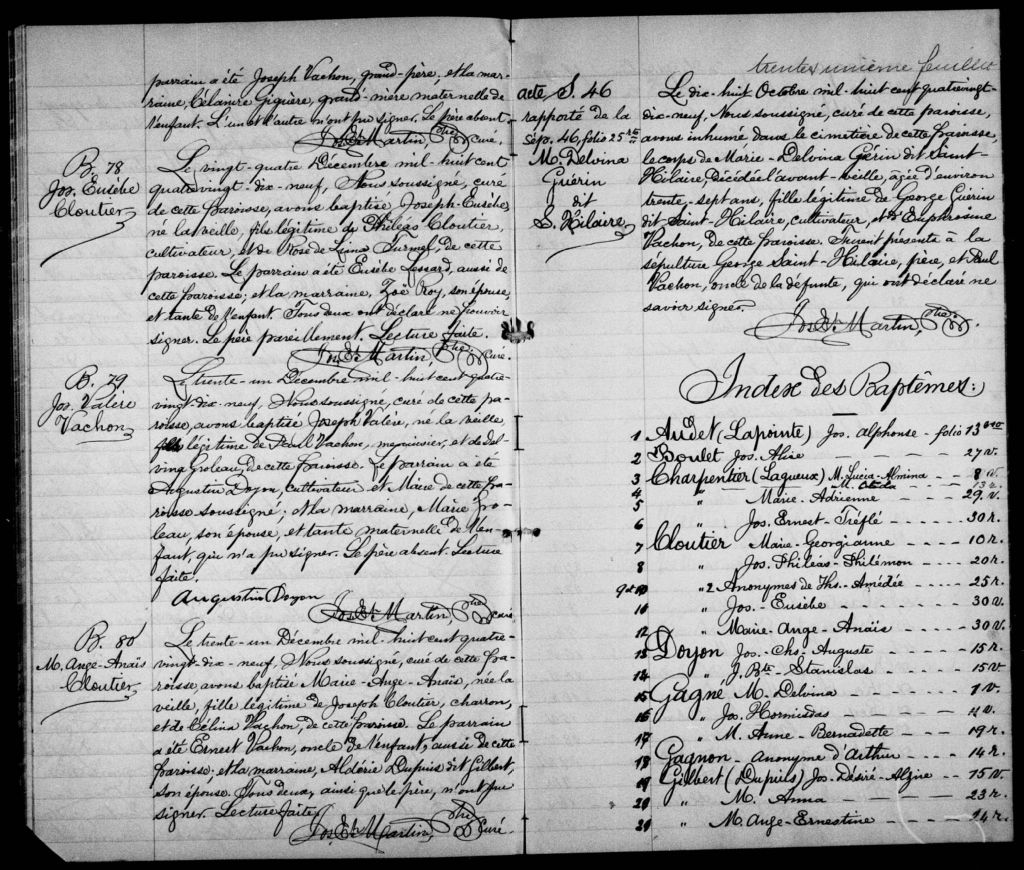 parrain a été Joseph Vachon, grand-père, et la mar-
raine, Célanire Giguère, grand-mère maternelle de
l'enfant. L'un et l'autre n'ont pu signer. Le père absent.
Jos. D. Martin, Ptre Curé.
B. 78
Jos. Eusèbe
Cloutier
Le vingt-quatre Décembre mil-huit cent
quatrevingt-dix-neuf, Nous soussigné, curé
de cette paroisse, avons baptisé Joseph-Eusèbe,
né la veille, fils légitime de Philéas Cloutier,
cultivateur, et de Rose de Lima Turmel, de cette
paroisse. Le parrain a été Eusèbe Lessard, aussi de
cette paroisse; et la marraine, Zoë Roy, son épouse,
et tante de l'enfant. Tous deux ont déclaré ne pouvoir
signer. Le père pareillement. Lecture faite.
Jos. D. Martin, Ptre Curé.
B. 79
Jos. Valère
Vachon
Le trente-un Décembre mil-huit cent quatre-
vingt-dix-neuf, Nous soussigné, curé de cette pa-
roisse, avons baptisé Joseph Valère, né la veille,
fils légitime de Paul Vachon, menuisier, et de Del-
vina Groleau, de cette paroisse. Le parrain a été
Augustin Doyon, cultivateur et Maire de cette pa-
roisse soussigné; et la marraine, Marie Gro-
leau, son épouse, et tante maternelle de l'en-
fant, qui n'a pu signer. Le père absent. Lecture
faite.
Augustin Doyon
Jos. D. Martin, Ptre curé
B. 80
M. Ange-Anaïs
Cloutier
Le trente-un Décembre mil-huit cent quatre-
vingt-dix-neuf, Nous soussigné, curé de cette pa-
roisse, avons baptisé Marie-Ange-Anaïs, née la
veille, fille légitime de Joseph Cloutier, charron,
et de Célina Vachon, de cette paroisse. Le parrain
a été Ernest Vachon, oncle de l'enfant, aussi de cette
paroisse; et la marraine, Aldérie Dupuis dit Gilbert,
son épouse. Tous deux, ainsi que le père, n'ont pu
signer. Lecture faite.
Jos. D. Martin, Ptre Curé.
trente unième feuillet
acte, S. 46
rapporté de la
Sép. 46, folio 25
M. Delvina
Guérin
dit
S. Hilaire
Le dix-huit Octobre mil-huit cent quatrevingt-
dix-neuf, Nous soussigné, curé de cette paroisse,
avons inhumé dans le cimetière de cette paroisse,
le corps de Marie-Delvina Gérin dit Saint-
Hilaire, décédée l'avant-veille, âgée d'environ
trente-sept ans, fille légitime de George Guérin
dit Saint-Hilaire, cultivateur, et d'Euphrosine
Vachon, de cette paroisse. Furent présents à la
sépulture George Saint-Hilaire, père, et Paul
Vachon, oncle de la défunte, qui ont déclaré ne
savoir signer.
Jos. D. Martin, Ptre
Index des Baptêmes:
1 Audet (Lapointe) Jos. Alphonse - folio 13
2 Boulet Jos. Alire - - - 27 v.
3 Charpentier (Lagueux) M. Lucia-Almina - - 8 v.
4 " M. - - 13 r.
5 " Marie-Adrienne - - - 29. v.
6 " Jos. Ernest-Tréflé - - - 30 r.
7 Cloutier Marie-Georgianne - - - 10 r.
8 " Jos. Philéas-Philémon - - - 20 r.
9 et 10 " 2 Anonymes de Ths-Amédée - - - 25 r.
11 " Jos.-Eusèbe - - - 30 v.
12 " Marie-Ange-Anaïs - - - 30 v.
13 Doyon Jos.-Chs-Auguste - - - 15 r.
14 " J. Bte-Stanislas - - - 15 v
15 Gagné M. Delvina - - - 1 v.
16 " Jos. Hormisdas - - - 4 v.
17 " M. Anne-Bernadette - - - 19 r.
18 Gagnon - Anonyme d'Arthur - - - 14 r.
19 Gilbert (Dupuis) Jos-Désiré-Algire - - 15 v.
20 " M. Anna - - - 23 r.
21 " M. Ange-Ernestine - - - 14 r.